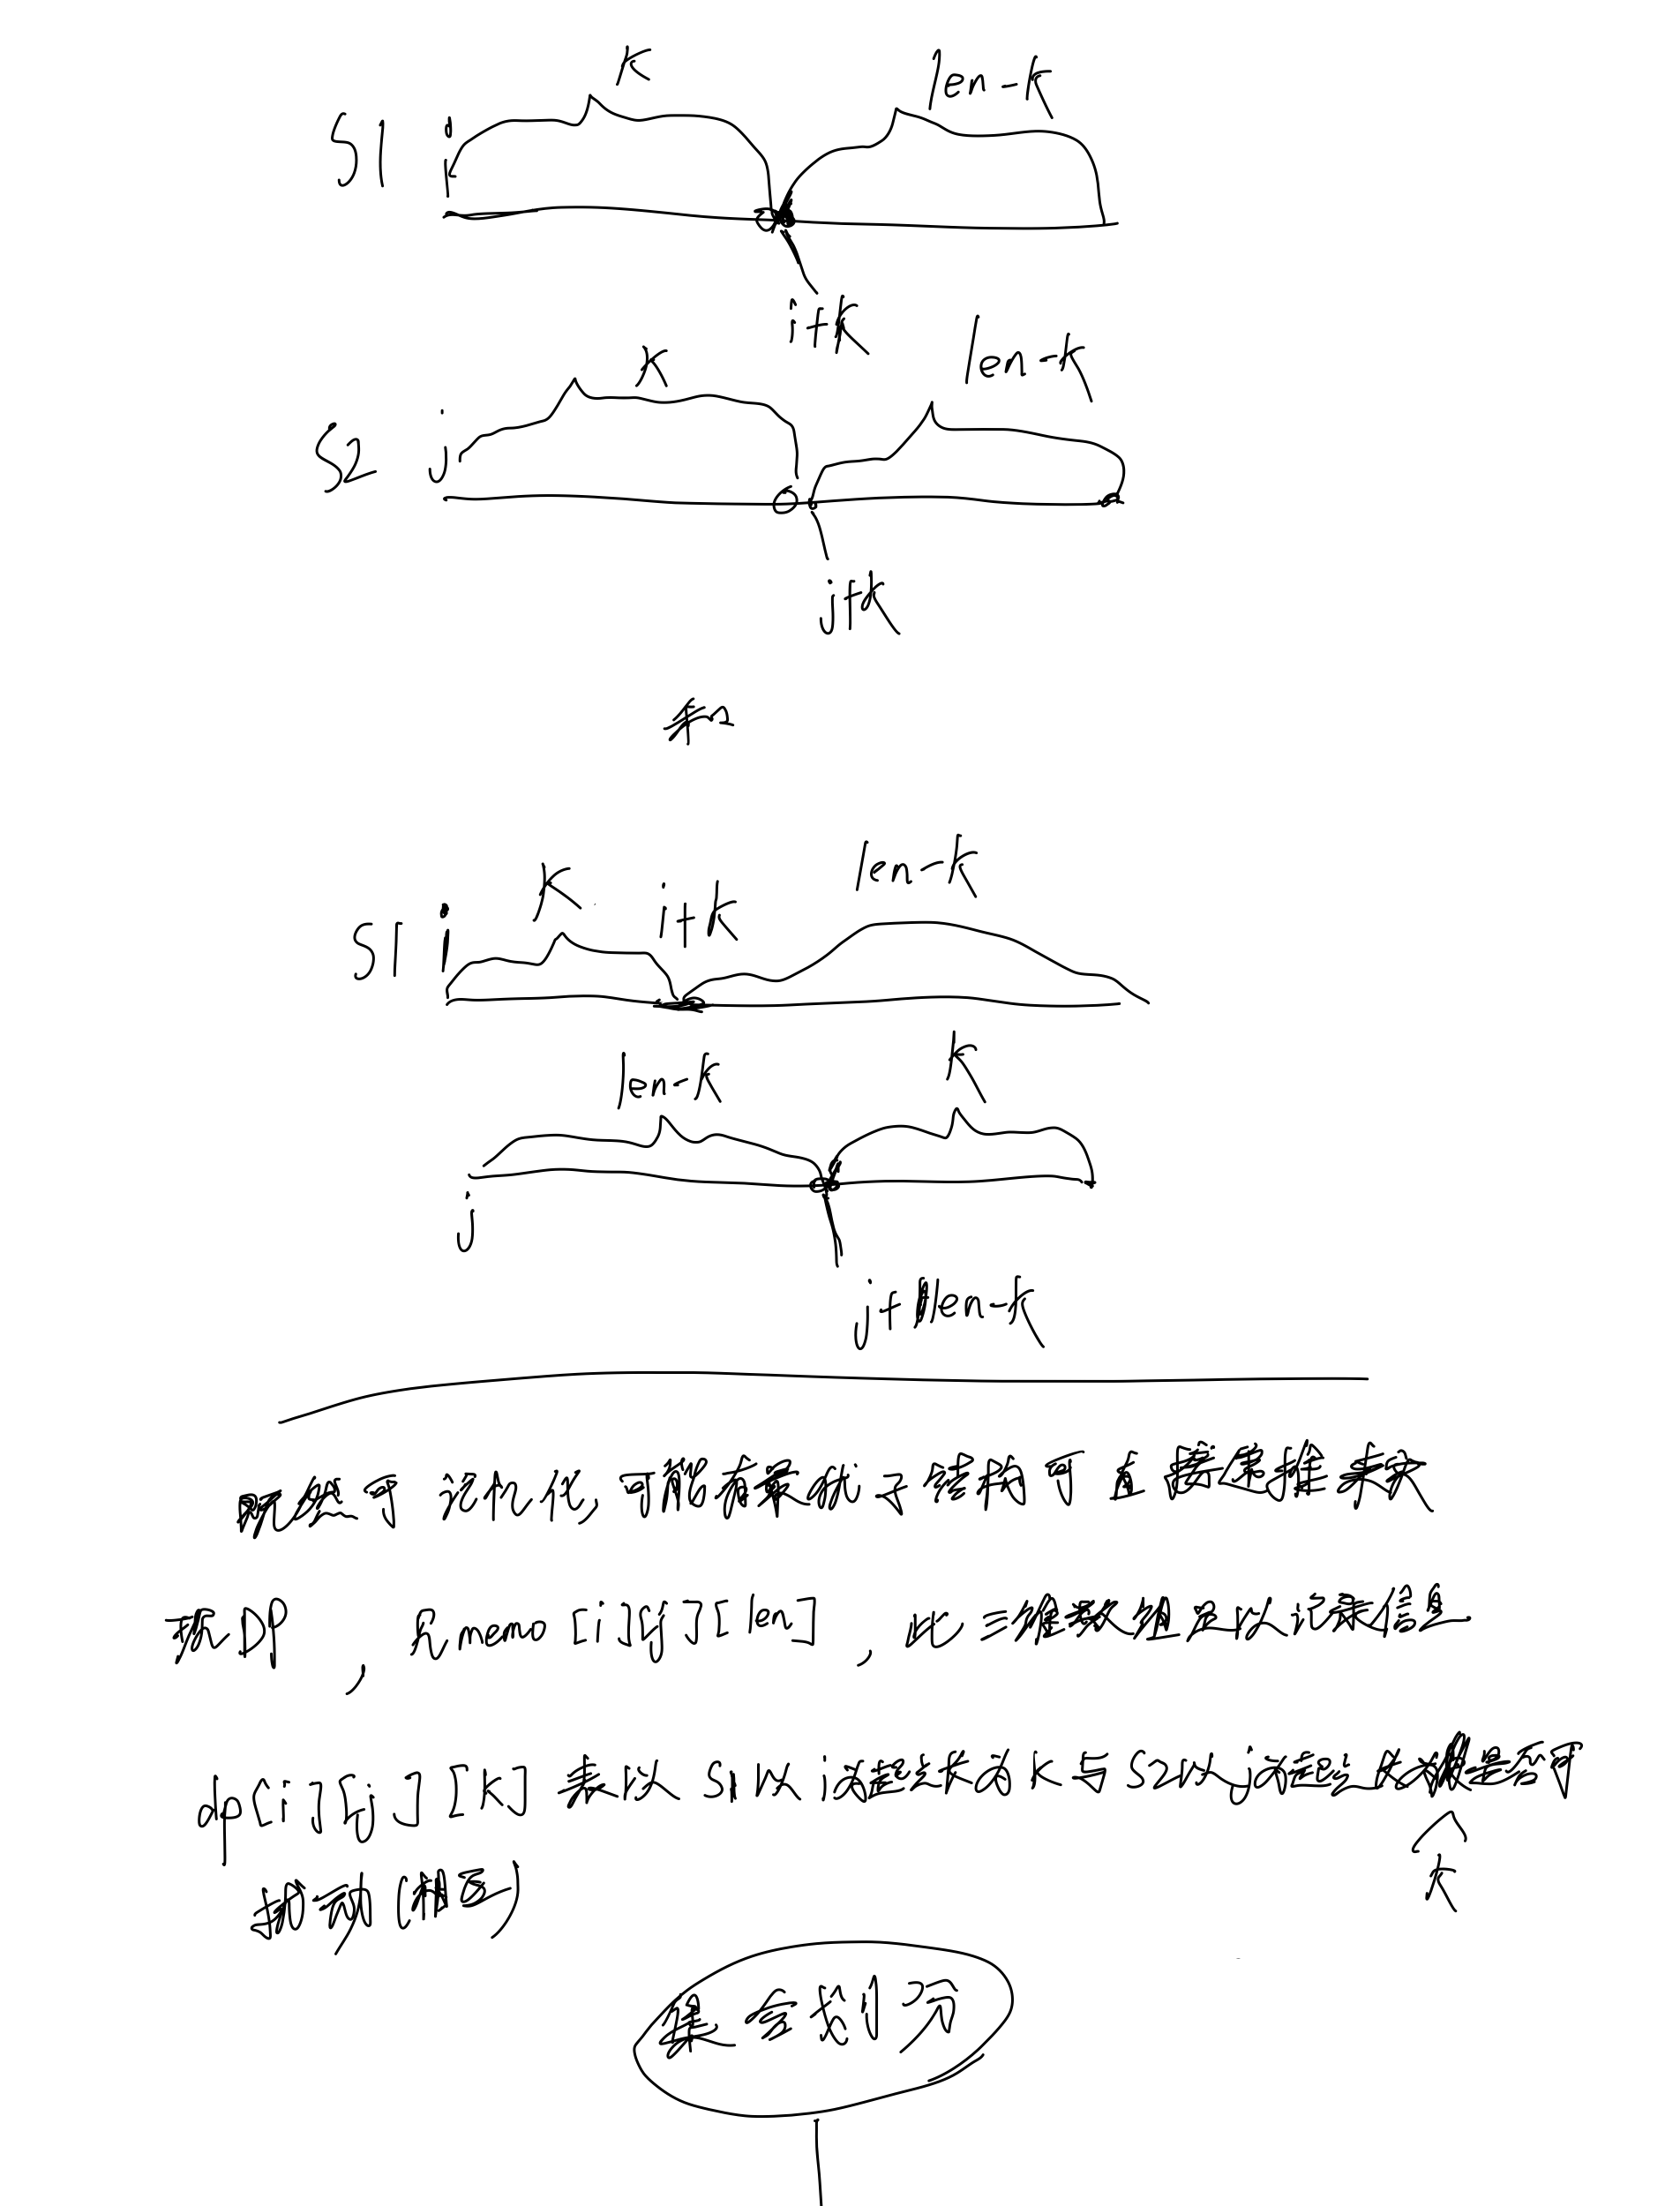 k len-k
S1 i
i+k
k len-k
S2 j
j+k
和
len-k
k i+k
S1 i
len-k k
j
j+len-k
既然可记忆化,可能有最优子结构可直接递推来实
现DP , 見memo[i][j][len] , 此三维数组足以记录信息
dp[i][j][k] 表以 S1以i为起点长为k与S2以j为起点长为k是否可
扰动(相互)
集合划分